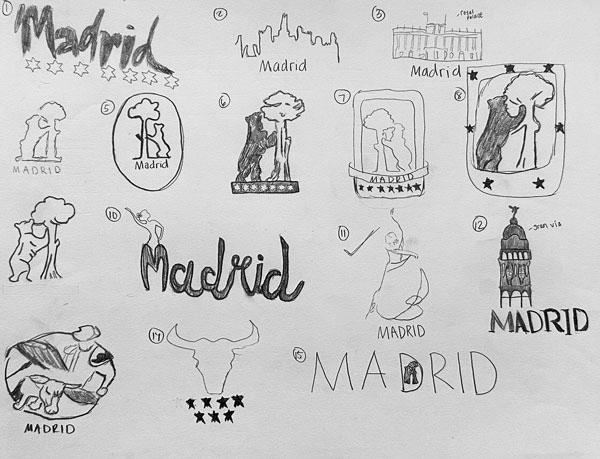 1
Madrid
2
Madrid
3
royal
palace
Madrid
MADRID
5
Madrid
6
7
MADRID
8
10
Madrid
11
MADRID
12
gran via
MADRID
MADRID
14
15
MADRID